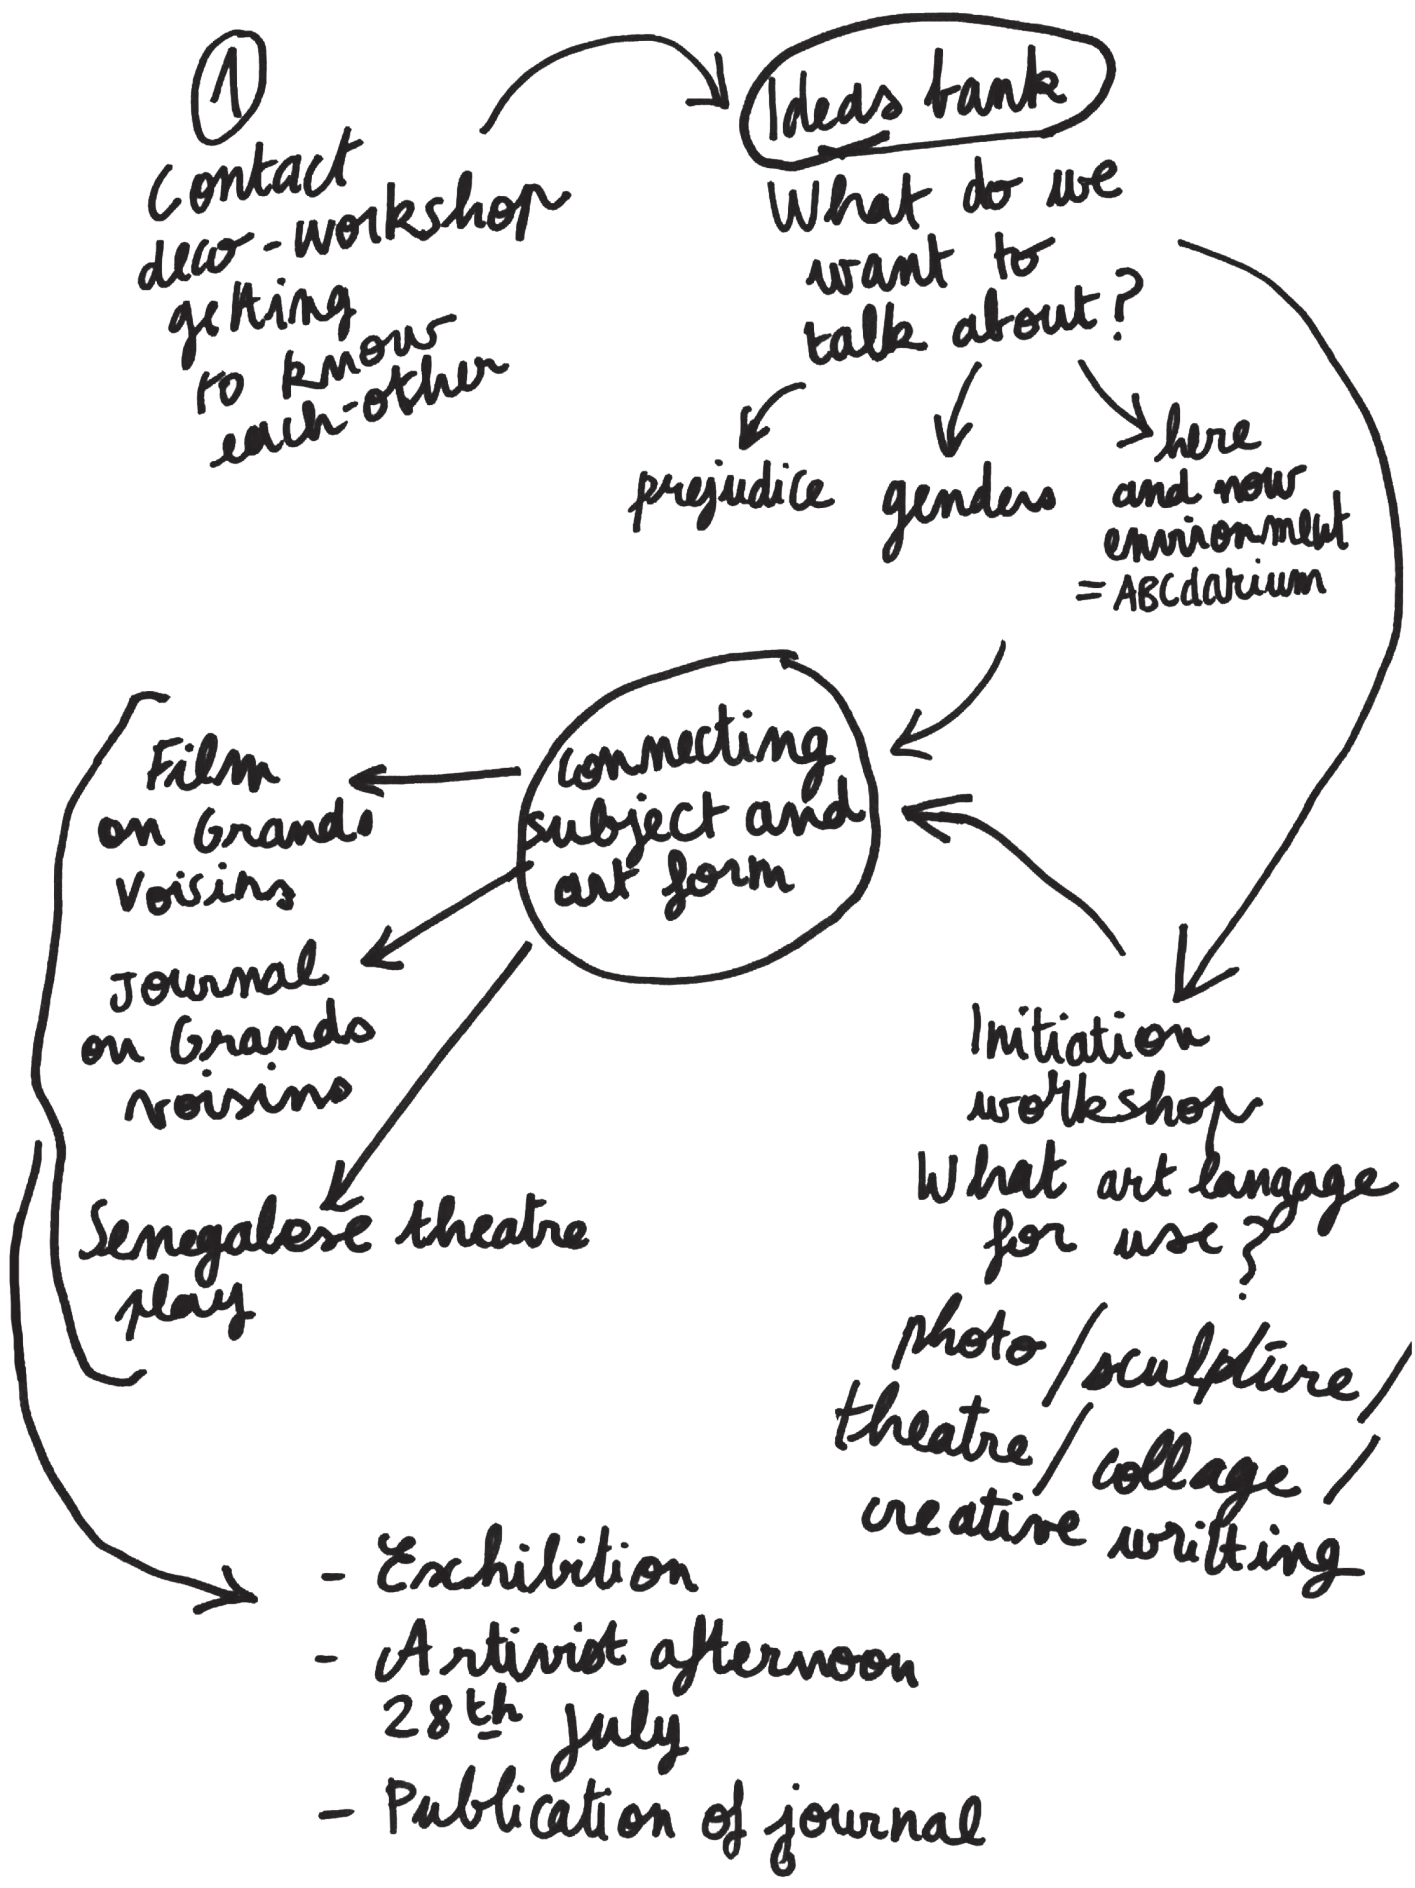 1
Contact
deco-workshop
getting
to know
each-other
Ideas bank
What do we
want to
talk about?
prejudice
genders
here
and now
environment
= ABCdarium
connecting
subject and
art form
Film
on Grands
Voisins
Journal
on Grands
voisins
Senegalese theatre
play
Initiation
workshop
What art langage
for use?
photo / sculpture /
theatre / collage /
creative writting
- Exhibition
- Artivist afternoon
28th july
- Publication of journal